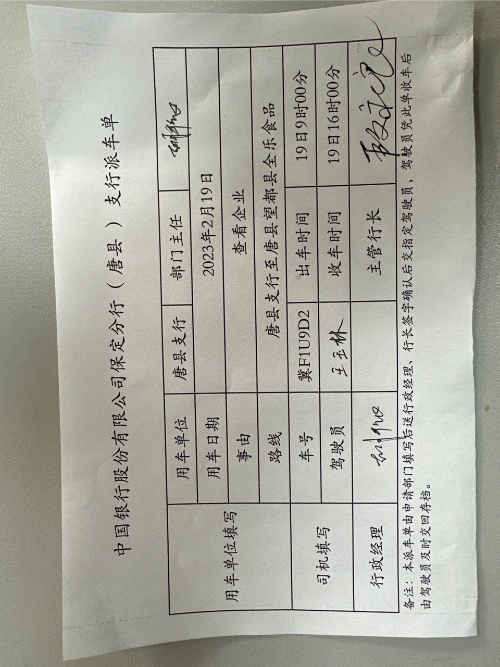 中国银行股份有限公司保定分行（唐县）支行派车单
用车单位填写
用车单位 唐县支行 部门主任
用车日期 2023年2月19日
事由 查看企业
路线 唐县支行至唐县望都县全乐食品
司机填写
车号 冀F1U9D2 出车时间 19日9时00分
驾驶员 王玉林 收车时间 19日16时00分
行政经理 主管行长
备注：本派车单由申请部门填写后送行政经理、行长签字确认后交指定驾驶员，驾驶员凭此单收车后
由驾驶员及时交回存档。